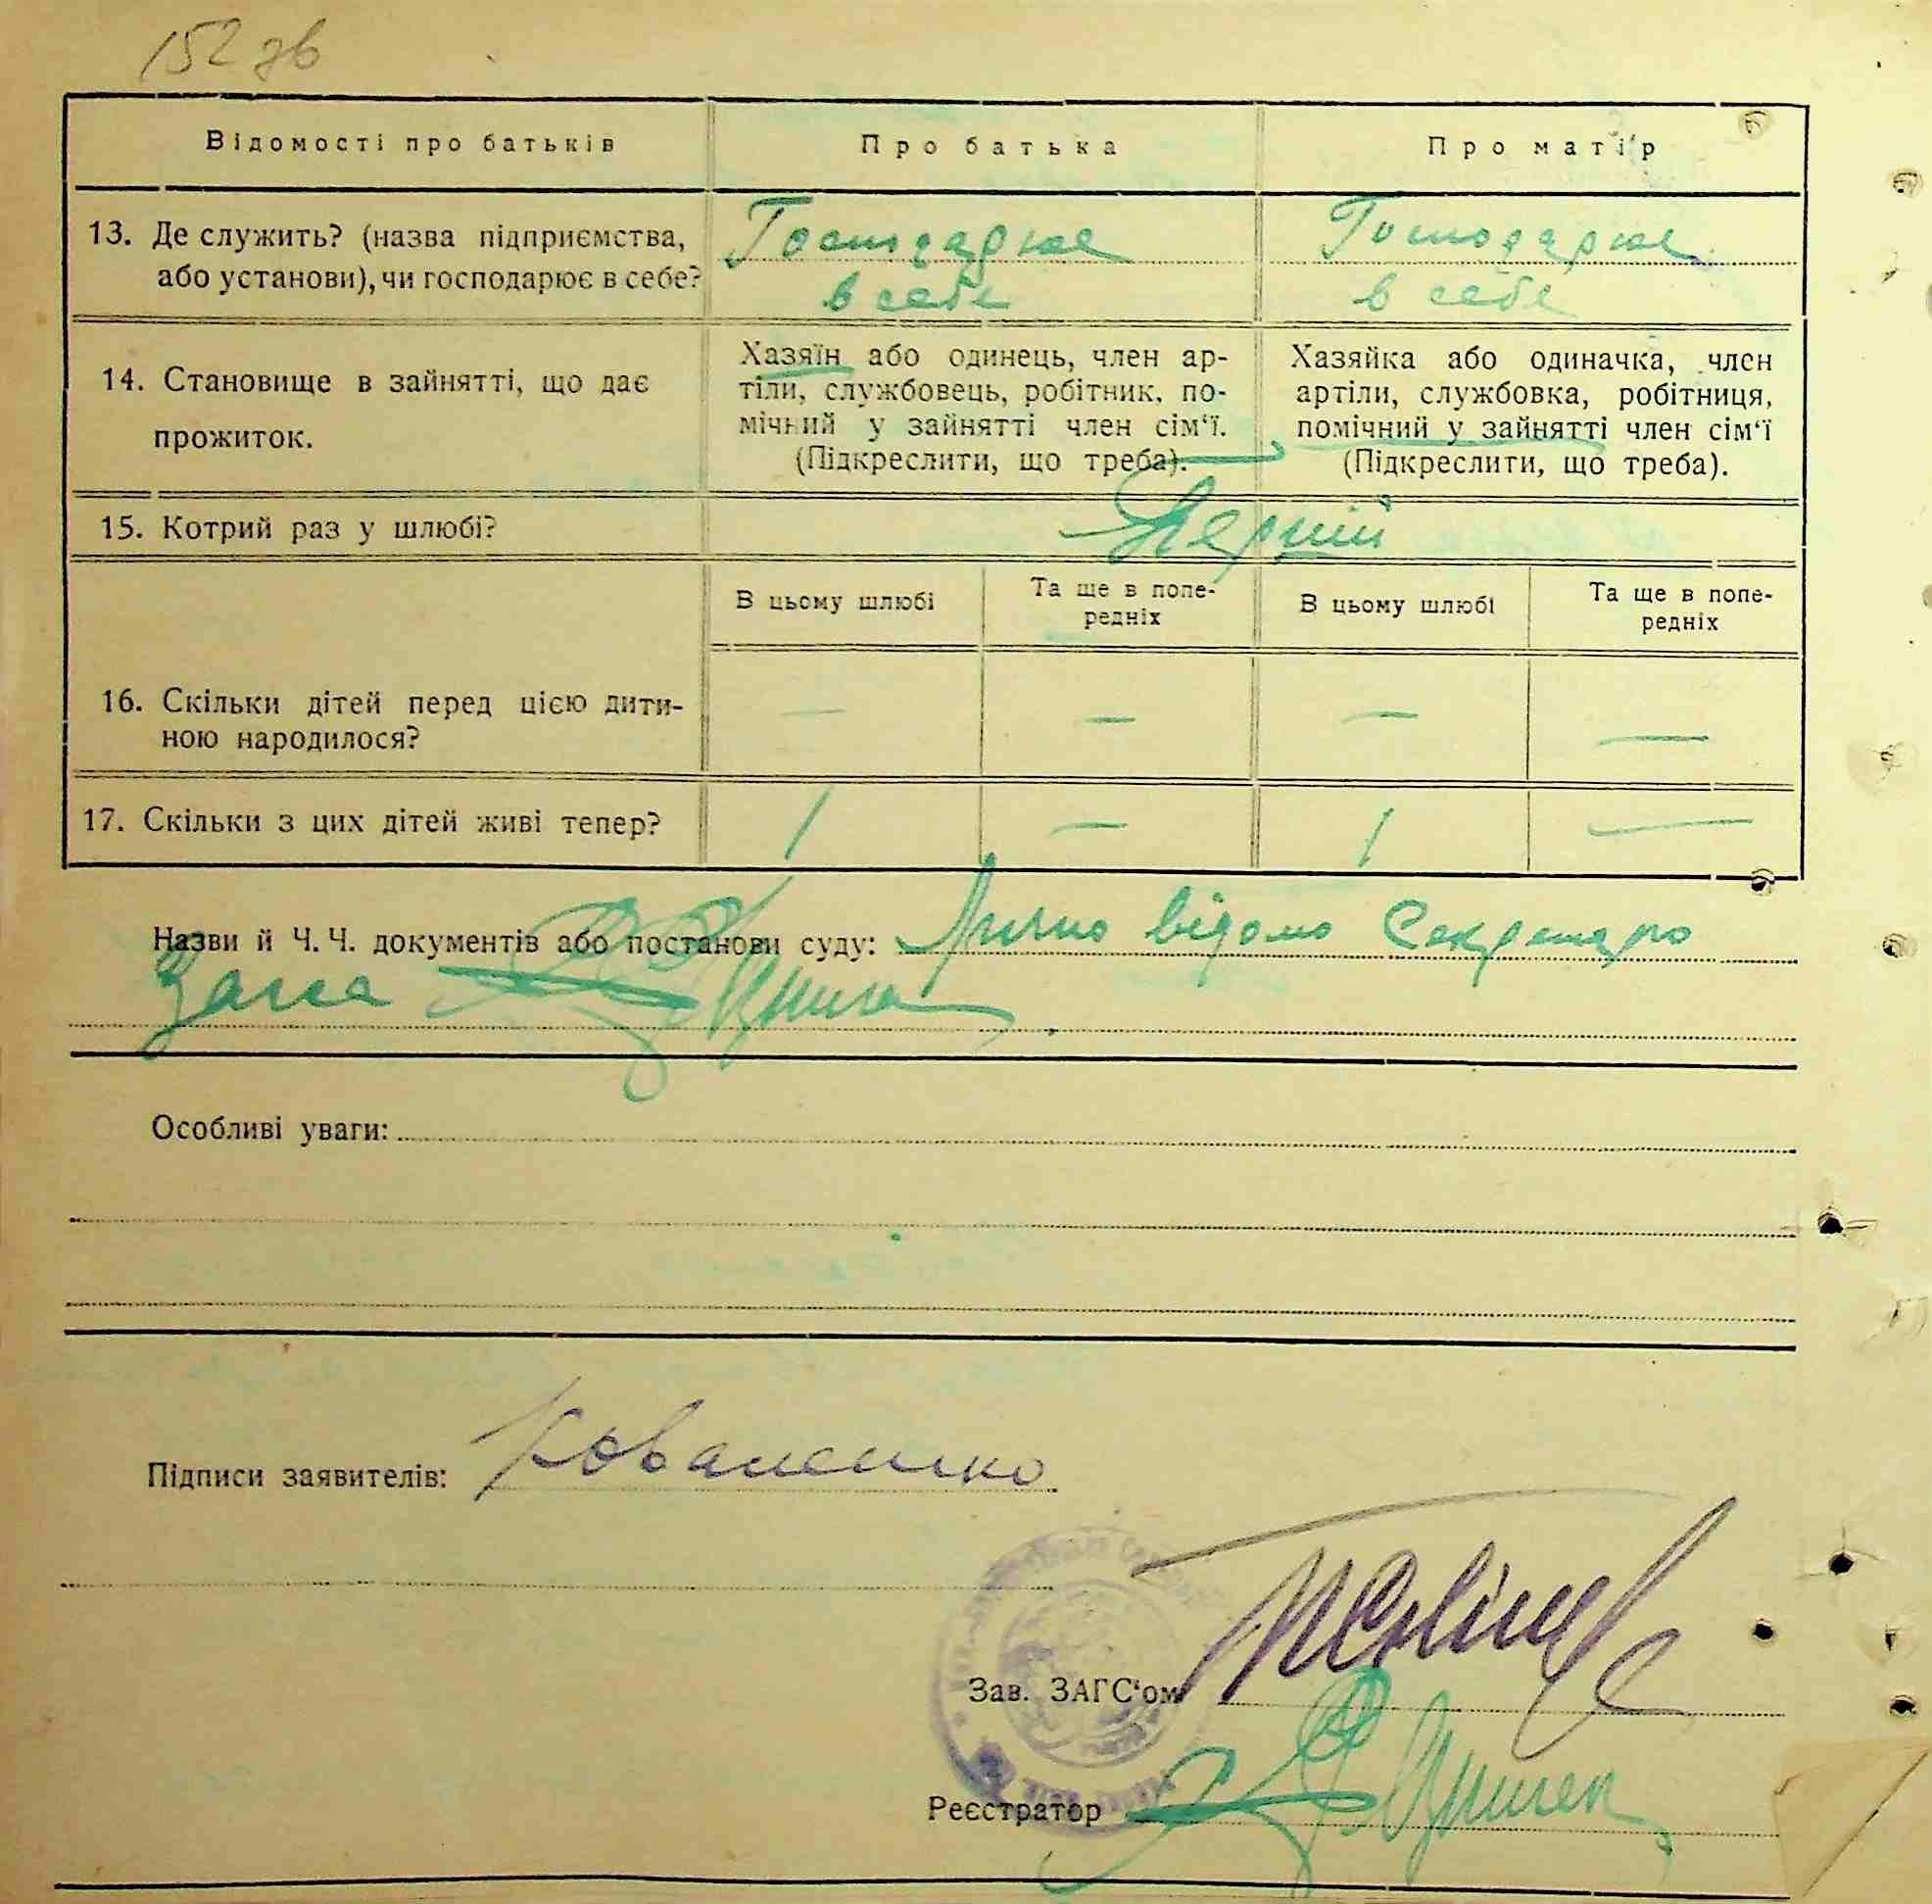 152 зв
Відомості про батьків
Про батька
Про матір
13. Де служить? (назва підприємства, або установи), чи господарює в себе?
Господарює
в себе
Господарює
в себе
14. Становище в зайнятті, що дає
прожиток.
Хазяїн або одинець, член ар-
тіли, службовець, робітник, по-
мічний у зайнятті член сім‘ї.
(Підкреслити, що треба).
Хазяйка або одиначка, член
артіли, службовка, робітниця,
помічний у зайнятті член сім‘ї
(Підкреслити, що треба).
15. Котрий раз у шлюбі?
Перший
В цьому шлюбі
Та ще в попе-
редніх
В цьому шлюбі
Та ще в попе-
редніх
16. Скільки дітей перед цією дити-
ною народилося?
— — — —
17. Скільки з цих дітей живі тепер?
1 — 1 —
Назви й Ч. Ч. документів або постанови суду: Лично відомо Секретарю
Загса
Особливі уваги:
Підписи заявителів: Коваленко
Зав. ЗАГС‘ом
Реєстратор